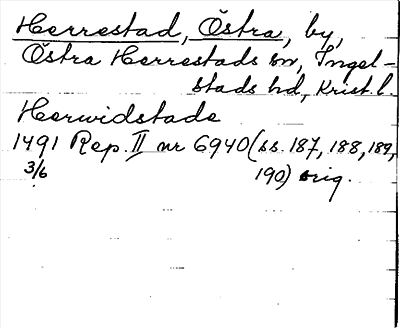 Herrestad, Östra, by,
Östra Herrestads sn, Ingel-
stads hd, Krist. l.
Herwidstade
1491 Rep. II nr 6940 (ss. 187, 188, 189,
3/6 190) orig.